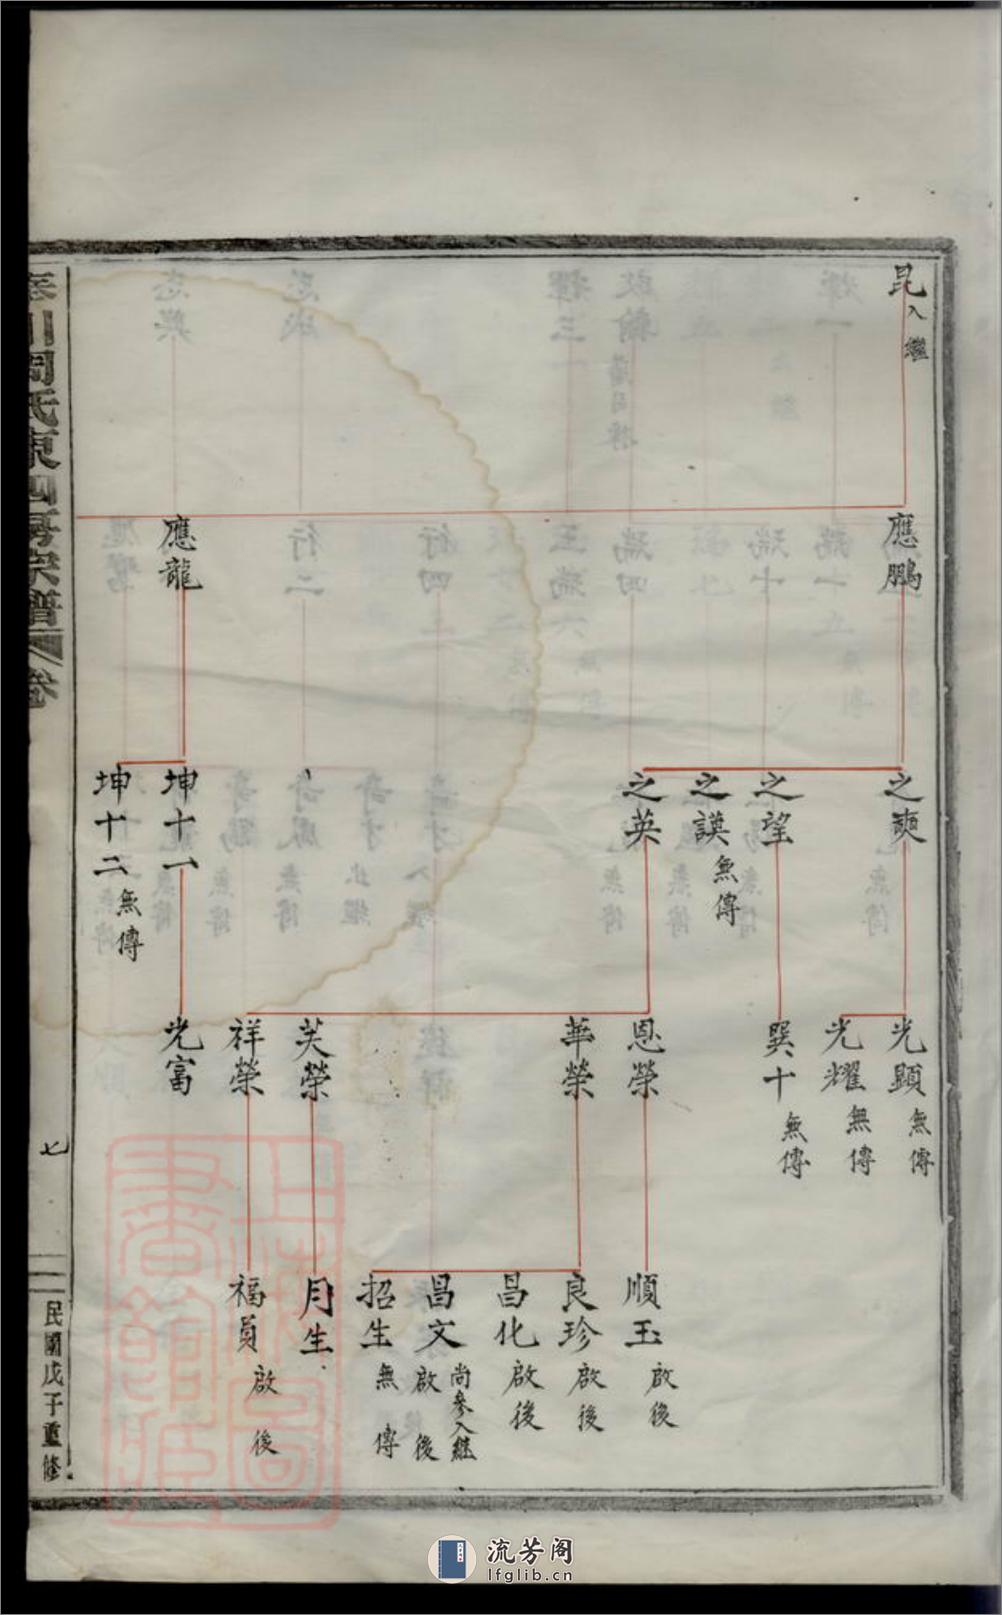 昆
入繼
應鵬
應龍
之奭
之望
之謨
無傳
之英
坤十一
坤十二
無傳
光顯
無傳
光耀
無傳
巽十
無傳
恩榮
華榮
芙榮
祥榮
光富
順玉
啟後
良珍
啟後
昌化
啟後
昌文
尚參入繼
啟後
招生
無傳
月生
福員
啟後
川周氏東四房宗譜
卷
七
民國戊子重修
流芳阁
lfglib.cn